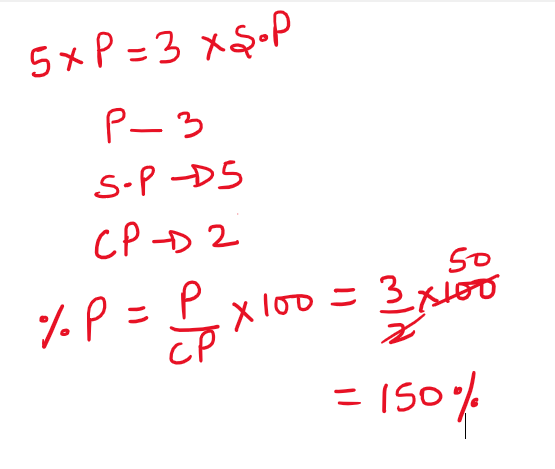 5 × P = 3 × S.P
P — 3
S.P → 5
CP → 2
% P = P/CP × 100 = 3/2 × 100 50
= 150 %